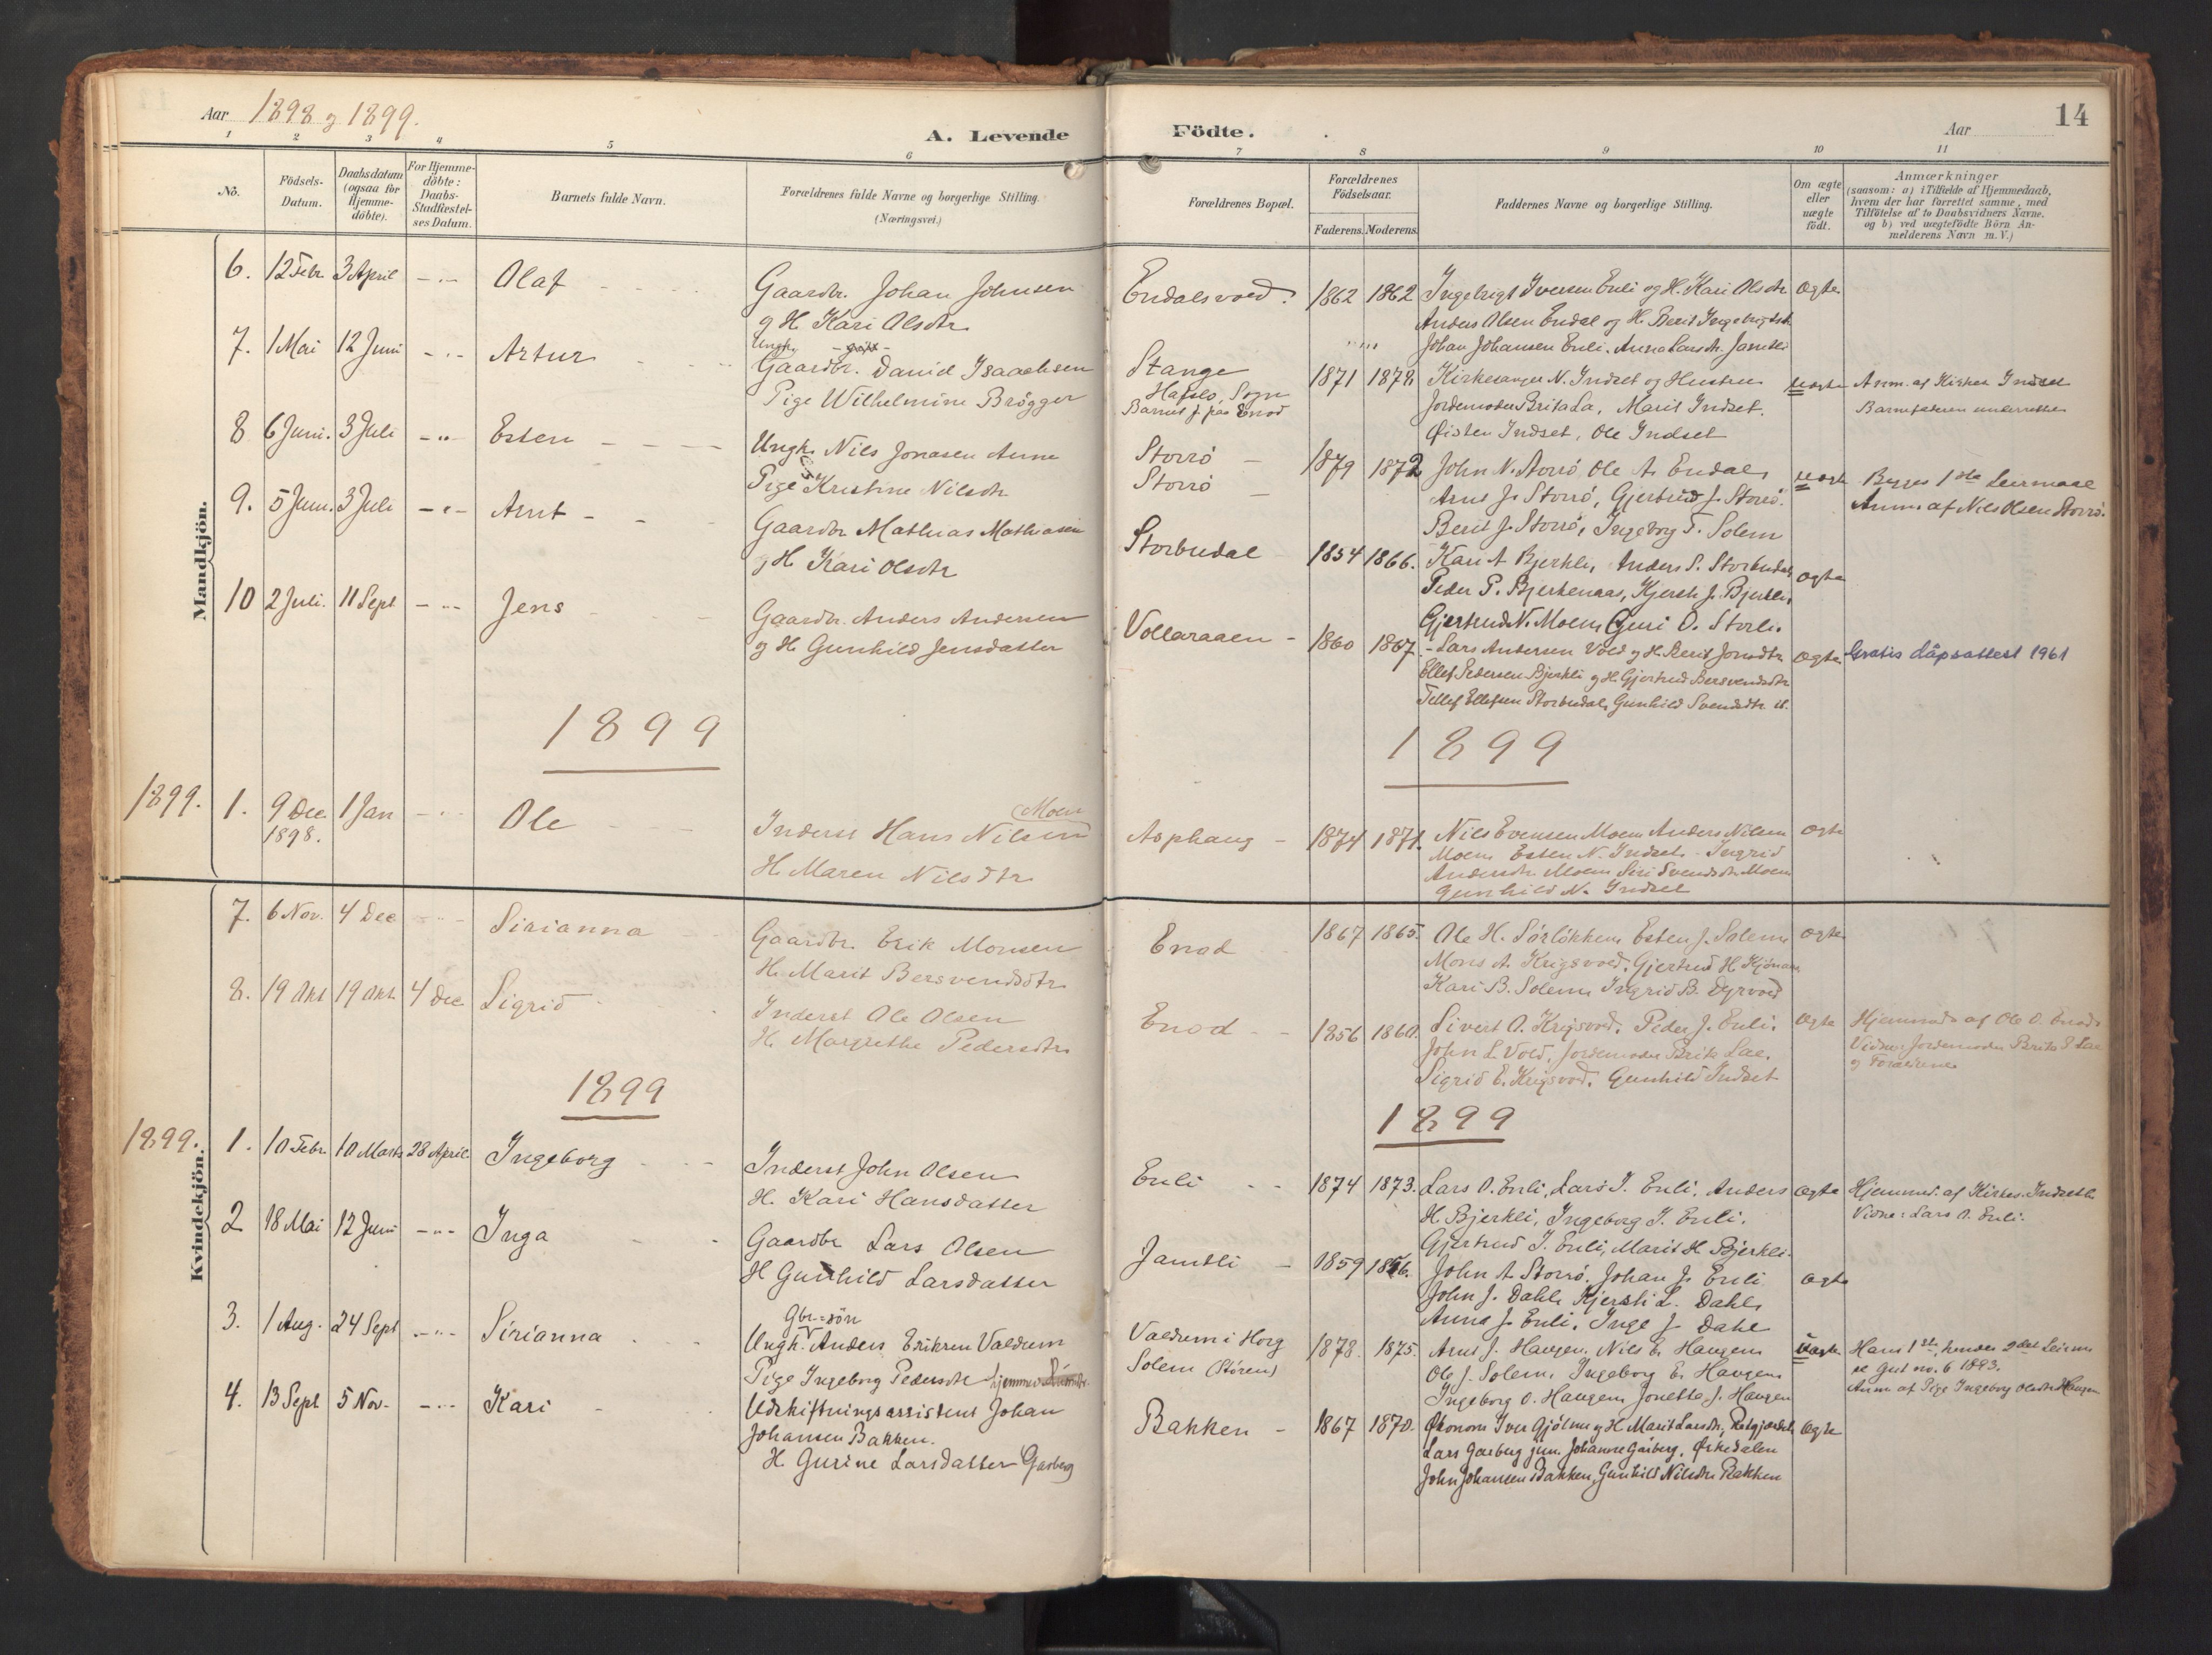 Aar 1898 og 1899.
A. Levende Födte.
Aar
14
1 2 3 4 5 6 7 8 9 10 11
No.
Födsels-Datum.
Daabsdatum (ogsaa for Hjemme-döbte).
For Hjemme-döbte: Daabs-Stadfæstel-ses Datum.
Barnets fulde Navn.
Forældrenes fulde Navne og borgerlige Stilling.
(Næringsvei.)
Forældrenes Bopæl.
Forældrenes Födselsaar.
Faderens. Moderens.
Faddernes Navne og borgerlige Stilling.
Om ægte eller uægte født.
Anmærkninger
(saasom: a) i Tilfælde af Hjemmedaab, hvem der har forrettet samme, med Tilföielse af to Daabsvidners Navne. og b) ved uægtefödte Börn An-melderens Navn m.V.)
Mandkjön.
6. 12 Febr. 3 April -"- Olaf
Gaardbr. Johan Johnsen
og H. Kari Olsdtr
Endalsvold. 1862 1862
Ingebrigt Iversen Enli og H. Kari Olsdtr
Anders Olsen Endal og H. Berit Ingebrigtsdtr
Johan Johansen Enli. Anna Larsdtr. Jamtli
Ægte
7. 1 Mai 12 Juni -"- Artur
Ungk. - gift -
Gaardbr. David Isaachsen
Pige Wilhelmine Brøgger
Stange
Hafslo, Sogn
Barnet f. paa Enod
1871 1872
Kirkesanger N. Indset og Hustru
Jordemoder Brita La, Marit Indset.
Øisten Indset, Ole Indset
uægte
Anm. af Kirkes. Indset
Barnefaderen underrettet
8 6 Juni. 3 Juli -"- Esten
Ungk. Nils Jonasen Aune
Pige Kristine Nilsdtr
Storrö
Storrö
1879 1872
John N. Storrö Ole A. Endal,
Arnt J. Storrö, Gjertrud J. Storrö.
Berit J. Storrö, Ingeborg T. Solem
uægte
Begges 1ste Leiermaal
Anm. af Nils Olsen Storrö.
9. 5 Juni. 3 Juli -"- Arnt
Gaardbr Mathias Mathiasen
og H. Kari Olsdtr
Storbudal 1854 1866.
Kari A Bjerkli, Anders S. Storbudal
Peder P. Bjerkenaas, Kjersti J. Bjerkli,
Gjertrud N. Moen, Guri O. Storli.
ægte
10 2 Juli. 11 Sept -"- Jens
Gaardbr. Anders Andersen
og H. Gunhild Jensdatter
Vollaraaen 1860 1867.
Lars Andersen Vold og H. Berit Jonsdtr
Ellef Pedersen Bjerkli og H. Gjertrud Bersvendsdtr
Tollef Ellefsen Storbudal, Gunhild Svendsdtr
ægte
Gratis dåpsattest 1961
1899
1899
1899. 1. 9 Dec. 1898. 1 Jan -"- Ole
Inderst Hans Nilsen (Moen
H. Maren Nilsdtr
Asphaug 1874 1871.
Nils Evensen Moen Anders Nilsen
Moen Esten N. Indset Ingrid
Andersdtr Moen Siri Svendsdtr Moen
Gunhild N. Indset
ægte
Kvindekjön.
7. 6 Nov. 4 Dec -"- Sirianna
Gaardbr. Erik Monsen
H. Marit Bersvendsdtr
Enod 1867 1865.
Ole H. Sörlökken, Esten J. Solem
Mons A. Krigsvold, Gjertrud H. Kjönaas
Kari B. Solem, Ingrid B. Dyrvold
ægte
8. 19 Okt 19 Okt. 4 Dec Sigrid
Inderst Ole Olsen
H. Margrethe Pedersdtr
Enod 1856 1860.
Sivert O. Krigsvold. Peder J. Enli.
John L. Vold, Jordemoder Brita Lae.
Sigrid E. Krigsvold. Gunhild Indset
ægte
Hjemmed. af Ole O. Enod.
Vidner: Jordemoder Brita Lae
og Forældrene
1899
1899
1899. 1. 10 Febr. 10 Marts 28 April. Ingeborg
Inderst John Olsen
H. Kari Hansdatter
Enli 1874 1873.
Lars O. Enli, Lars I. Enli, Anders
H. Bjerkli, Ingeborg I. Enli.
Gjertrud I. Enli, Marit H. Bjerkli.
ægte
Hjemmed. af Kirkes. Indset
Vidne: Lars O. Enli.
2 18 Mai 12 Juni -"- Inga
Gaardbr Lars Olsen
H Gunhild Larsdatter
Jamtli 1859
John A. Storrö. Johan J. Enli
John J. Dahl, Kjersti L. Dahl,
Anna J. Enli, Inge J. Dahl
ægte
3. 1 Aug. 24 Sept -"- Sirianna
Gbr. sön
Ungk. Anders Eriksen Valdum
Pige Ingeborg Pedersdtr hjemmev.
Valdum i Horg
Solem (Støren)
1878. 1875.
Arnt J. Haugen. Nils E. Haugen
Ole J. Solem, Ingeborg E. Haugen
Ingeborg O. Haugen, Jonetta J. Haugen
Uægte
Hans 1ste, hendes 2det Leierm.
se No. 6 1893.
Anm. af Pige Ingeborg Olsdtr Haugen
4. 13 Sept 5 Nov. -"- Kari
Udskiftningsassistent Johan
Johansen Bakken.
H. Gurine Larsdatter Garberg
Bakken 1867 1870.
Økonom Iver Gjølme og H Marit Larsdtr,
Lars Garberg jun. Johanne Garberg, Ørkedalen
John Johansen Bakken, Gunhild Nilsdtr Bakken
Ægte